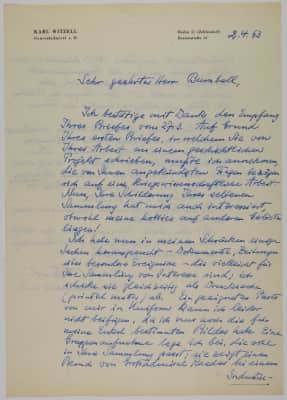 KARL WITZELL
Generaladmiral a. D.
Berlin 37 (Zehlendorf)
2.4.63
Sehr geehrter Herr Bumball,
Ich bestätige mit Dank den Empfang
Ihres Briefes vom 27.3. Auf Grund
Ihres ersten Briefes, in welchem Sie von
Ihrer Arbeit an einem geschichtlichen
Projekt schrieben, mußte ich annehmen,
die von Ihnen angekündigten Fragen bezögen
sich auf eine wissenschaftliche Arbeit.
Aber, Ihre Schilderung Ihrer seltenen
Sammlung hat mich auch interessiert,
obwohl meine hobbies auf anderen Gebieten
liegen!
Ich habe nun in meinen Schränken einige
Sachen herausgesucht - Dokumente, Zeitungen
über besondere Ereignisse - die vielleicht für
Ihre Sammlung von Interesse sind; ich
schicke sie gleichzeitig als Drucksache
(printed matter) ab. Ein geeignetes Photo
von mir in Uniform kann ich leider
nicht beifügen, da ich nur noch die für
meine Enkel bestimmten Bilder habe. Eine
Gruppenaufnahme lege ich bei, die wohl
in Ihre Sammlung passt; sie zeigt einen
Besuch von Großadmiral Raeder bei einem
Industrie-